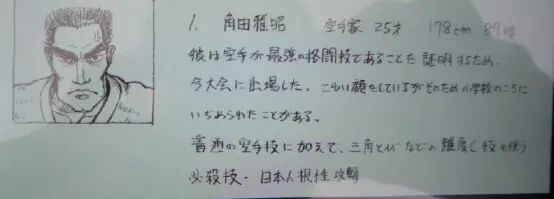 1. 角田雅昭 空手家 25才 178cm 87kg
彼は空手が最強の格闘技であることを証明するため、
今大会に出場した。こわい顔をしているがそのため小学校のころに
いぢめられたことがある。
普通の空手技に加えて、三角とびなどの難度C技も使う
必殺技・日本人根性攻撃